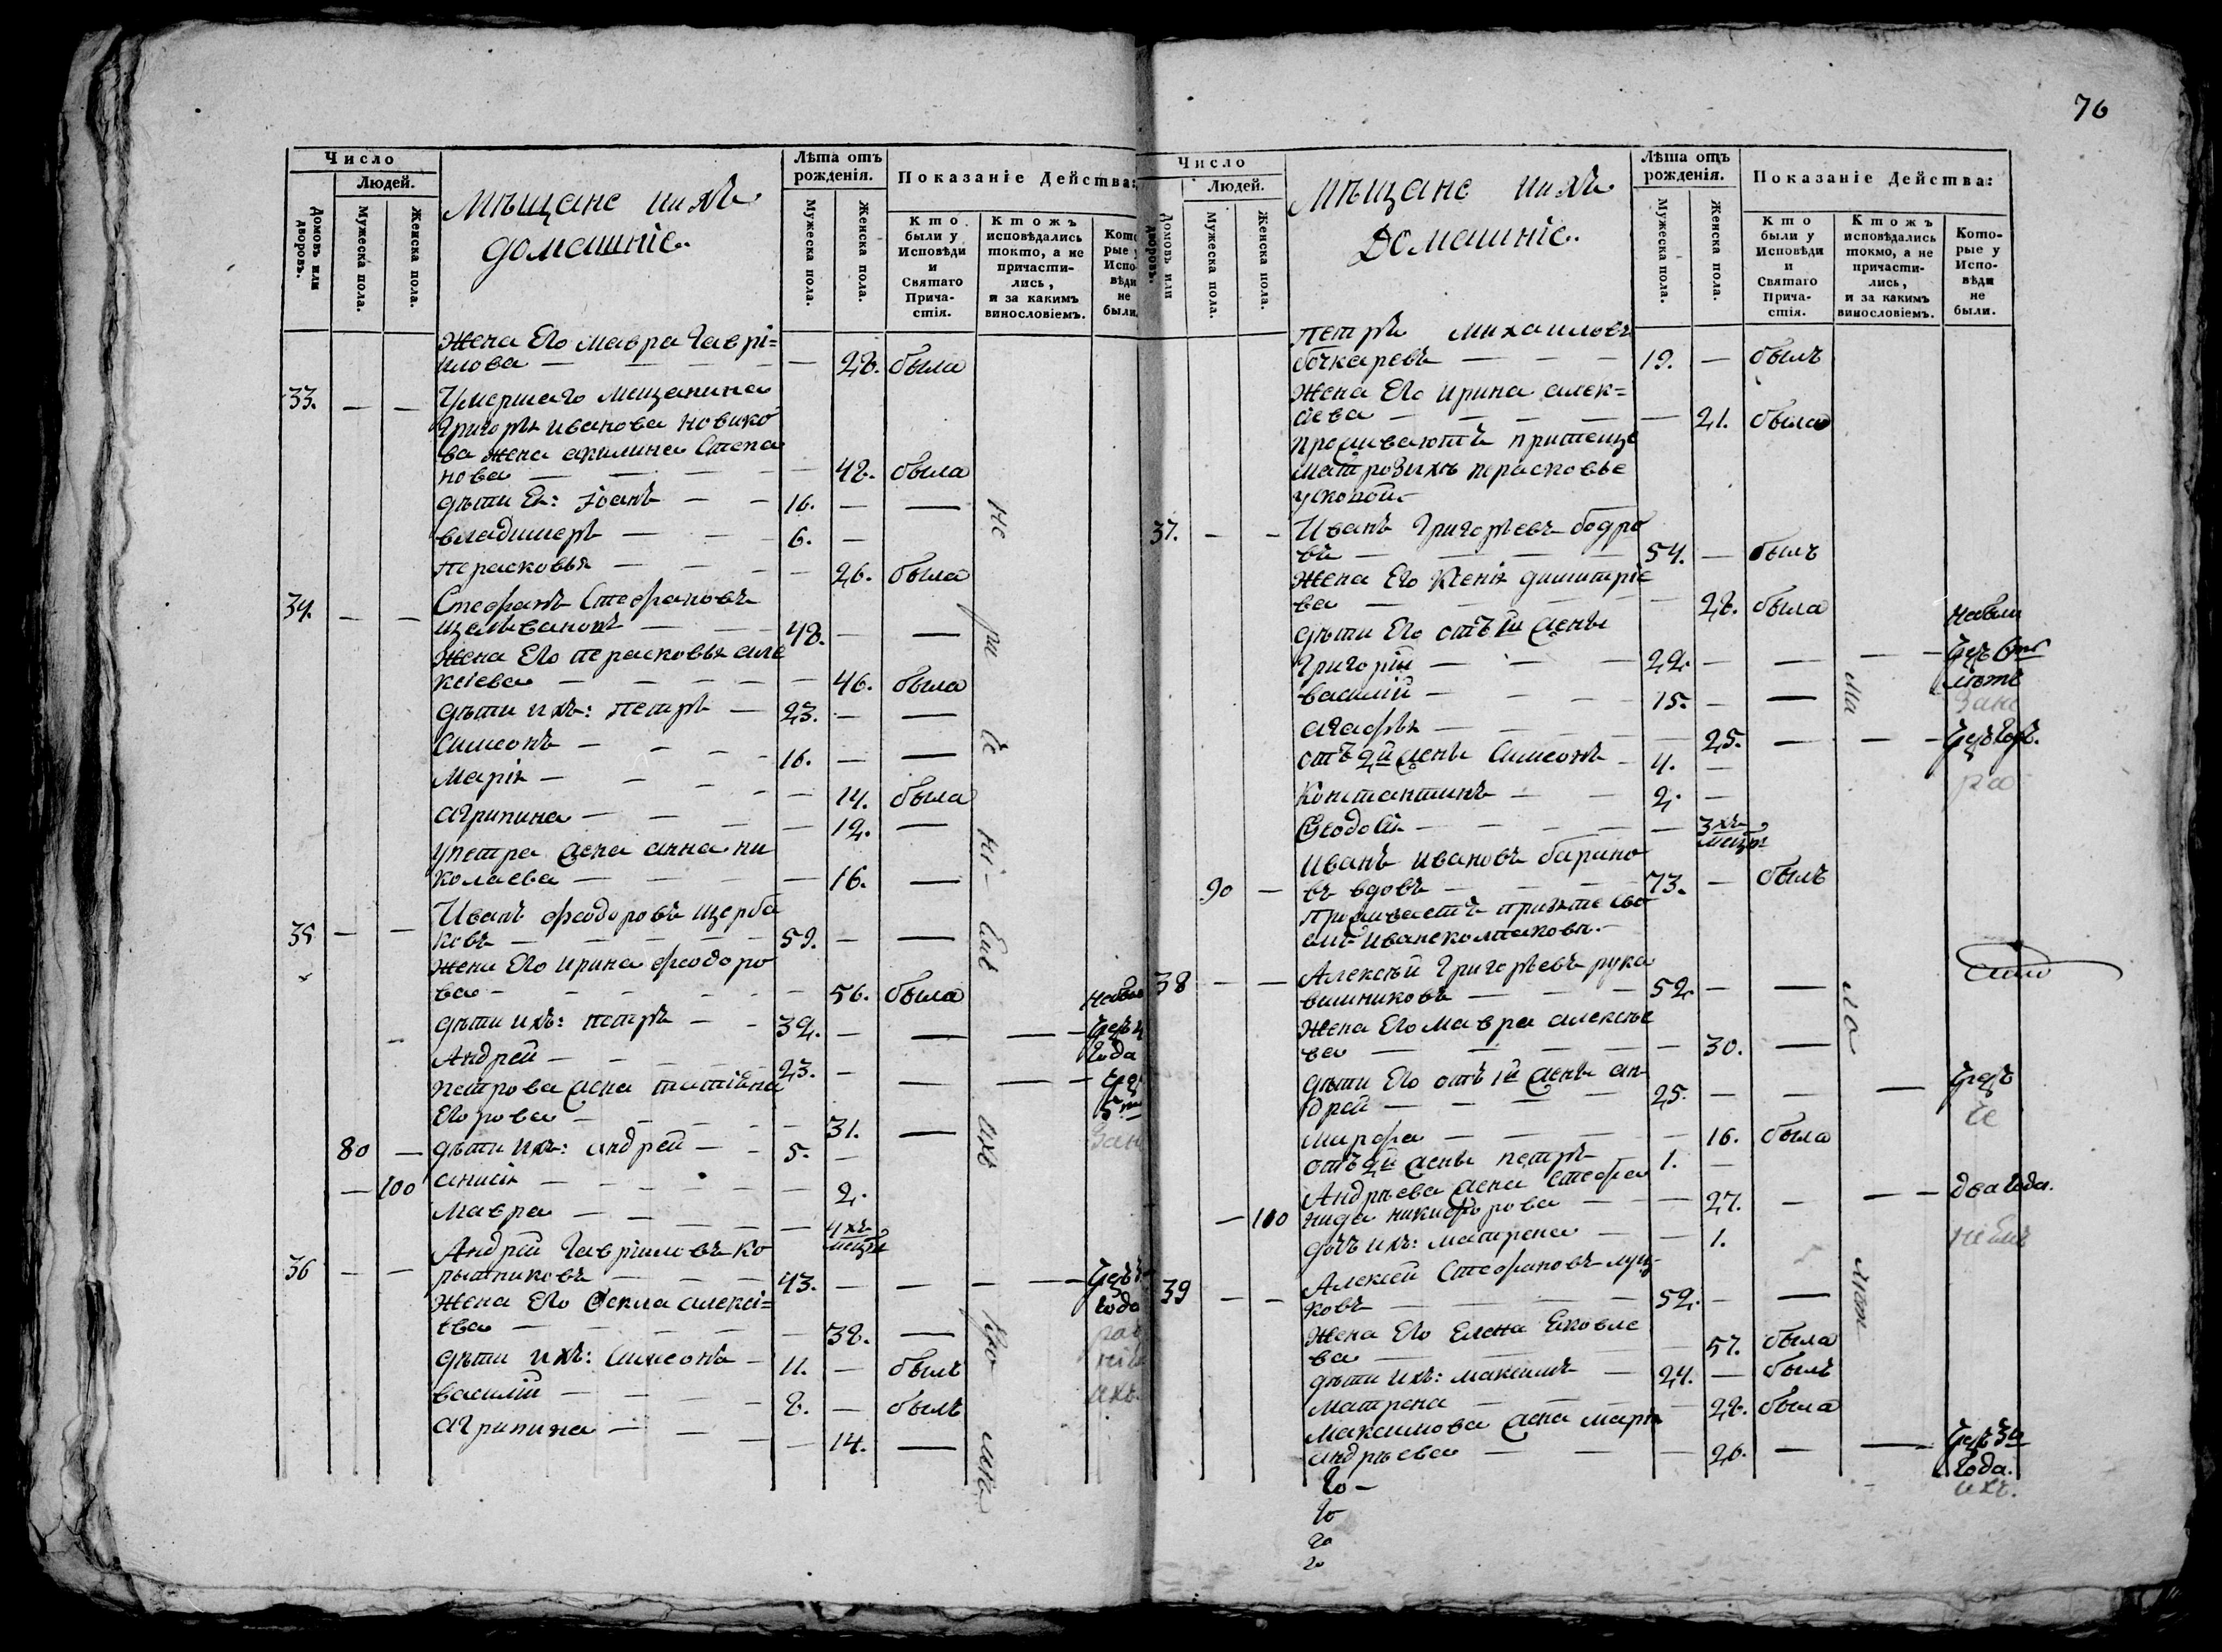 76
Число
Людей.
Домовъ или дворовъ.
Мужеска пола.
Женска пола.
Мѣщане иихъ
домашніе.
Лѣта отъ рожденія.
Мужеска пола.
Женска пола.
Показаніе Действа:
Кто были у Исповѣди и Святаго Прича-стія.
Ктожъ исповѣдались токто, а не причасти-лись, и за какимъ винословіемъ.
Кото
рые у
Испо-
вѣди
не
были.
Жена Его Мавра Гаврі=
илова — 28. была
33. — — Умершаго мещанина
Григорья Иванова Новико
ва жена акилина Степа
нова — 48. была
дѣти Ея: Іоанъ — 16. — —
владимеръ — 6. —
перасковья — 26. была
34. — — Стефанъ Стефановъ
— 48. — —
Жена Его перасковья але
ксіева — 46. была
дѣти ихъ: петръ — 23. — —
Симеонъ — 16. — —
Марія — 14. была
агрипина — 12. —
упетра жена анна ни
колаева — 16. —
35 — — Иванъ феодоровъ щерба
ковъ — 59. — —
жена Его ирина феодоро
ва — 56. была
дѣти ихъ: петръ — 32. — — —
года
Андрей — 23. — — —
петрова жена татіяна
Егорова — 31. —
80 — дѣти ихъ: андрей — 5. —
— 100 анисія — 2.
Мавра — 4хъ
месцы
36 — — Андрей Гавриловъ ко
рытниковъ — 43. — — —
года
Жена Его Фекла алексі=
ева — 38. —
дѣти ихъ: Симеонъ — 11. — былъ
василій — 8. — былъ
агрипина — 14. —
Число
Людей.
Домовъ или дворовъ.
Мужеска пола.
Женска пола.
Мѣщане иихъ
Домашніе.
Лѣта отъ рожденія.
Мужеска пола.
Женска пола.
Показаніе Действа:
Кто были у Исповѣди и Святаго Прича-стія.
Ктожъ исповѣдались токмо, а не причасти-лись, и за какимъ винословіемъ.
Кото-
рые у
Испо-
вѣди
не
были.
петръ михаиловъ
бочкаревъ — 19. — былъ
Жена Его ирина алек=
сіева — 21. была
проживаютъ притеще
перасковье
37. — — Иванъ Григорьевъ бодро
въ — 54. — былъ
жена Его Ксенія димитріе
ва — 28. была
дѣти Его отъ 1й жены
Григорій — 22. — — —
василій — 15. — —
агафья — 25. — —
отъ 2й жены Симеонъ — 4. —
Константинъ — 2. —
Феодосія — 3хъ
месцы
Иванъ ивановъ барино
90 — въ вдовъ — 73. — былъ
проживаетъ
38 — — Алексѣй Григорьевъ рука
вишниковъ — 52. — —
Жена Его Мавра алексѣе
ва — 30. —
дѣти Его отъ 1й жены ан
дрей — 25. — — —
Марфа — 16. была
отъ 2й жены петръ 1. —
Андрѣева жена Стефа
— 100 нида никифорова — 27. — — два года.
дочь ихъ: матрена — 1.
39 — — Алексей Стефановъ
ковъ — 52. — —
Жена Его Елена Яковле
ва — 57. была
дѣти ихъ: максимъ — 24. — былъ
матрена — 28. была
Максимова жена марія
андрѣева — 26. — —
года.